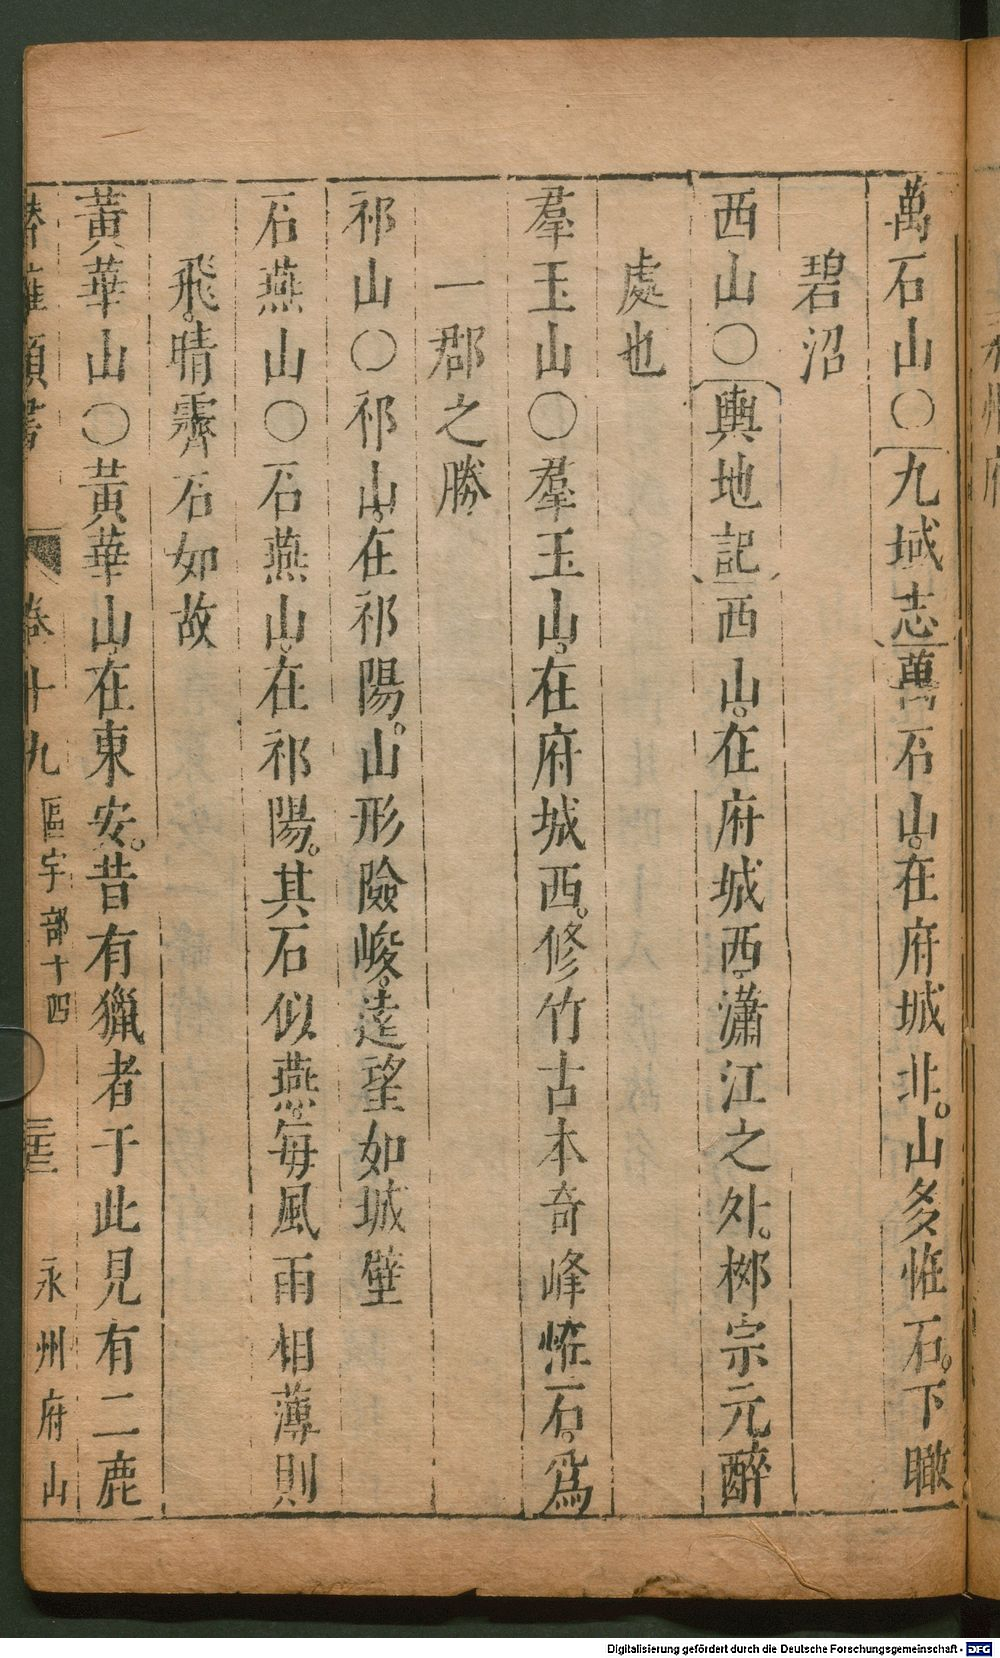 萬石山○九域志萬石山。在府城北。山多恠石。下瞰
碧沼
西山○輿地記西山。在府城西。瀟江之外。栁宗元醉
處也
羣玉山○羣玉山。在府城西。修竹古木奇峰恠石。爲
一郡之勝
祁山○祁山。在祁陽。山形險峻。遠望如城壁
石燕山○石燕山。在祁陽。其石似燕。每風雨相薄則
飛。晴霽石如故
黃華山○黃華山。在東安。昔有獵者于此見有二鹿
卷十九 區宇部十四 永州府山
Digitalisierung gefördert durch die Deutsche Forschungsgemeinschaft - DFG